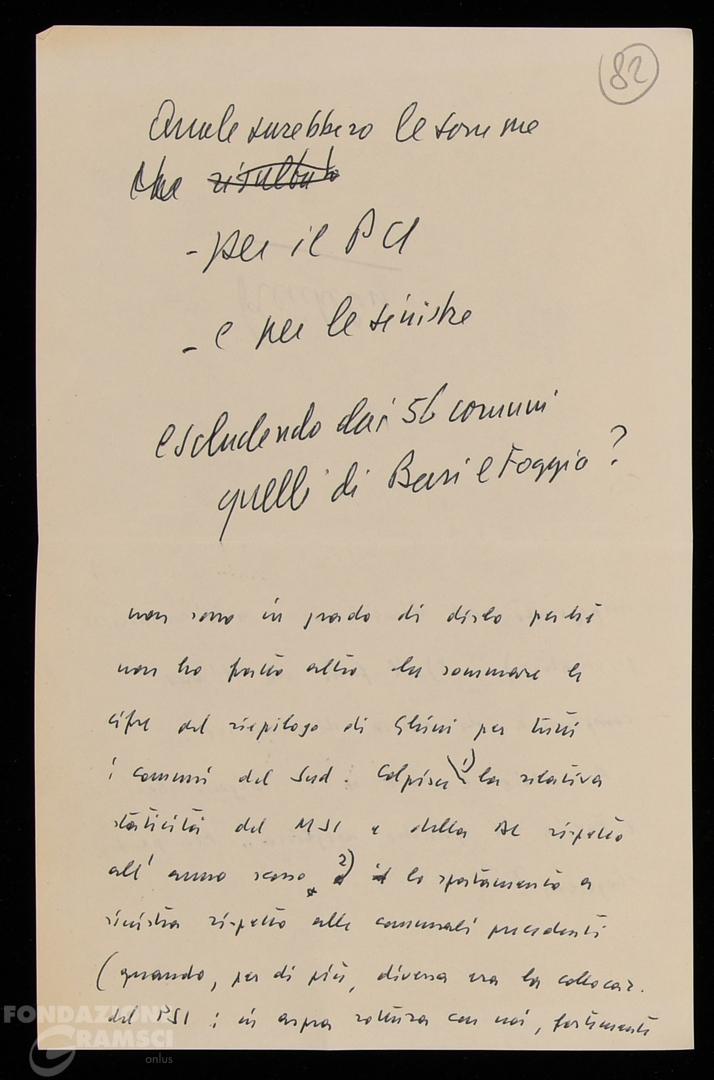 82
Quale sarebbero le somme
che risultato
- per il PCI
- e per le sinistre
escludendo dai 56 comuni
quelli di Bari e Foggia ?
non sono in grado di dirlo perché
non ho fatto altro che sommare le
cifre del riepilogo di Ghini per tutti
i comuni del Sud. Colpisce 1) la relativa
staticità del MSI e della DC rispetto
all' anno scorso, 2) lo spostamento a
sinistra rispetto alle comunali precedenti
(quando, per di più, diversa era la collocaz.
del PSI : in aspra rottura con noi, fortemente
FONDAZIONE
GRAMSCI
onlus